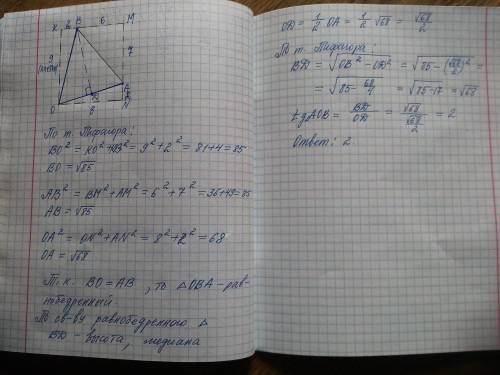 K 2 B 6 M
9
(клеток)
7
A
2
D
O 8 N
По т. Пифагора:
BO² = KO² + KB² = 9² + 2² = 81 + 4 = 85
BO = √85
AB² = BM² + AM² = 6² + 7² = 36 + 49 = 85
AB = √85
OA² = ON² + AN² = 8² + 2² = 68
OA = √68
Т. к. BO = AB, то △OBA - рав-
нобедренный.
По св-ву равнобедренного △
BD - высота, медиана
OD = 1/2 OA = 1/2 √68 = √68/2
По т. Пифагора
BD = √(OB² - OD²) = √(85 - (√68/2)²) =
= √(85 - 68/4) = √(85 - 17) = √68
tg∠AOB = BD/OD = √68/(√68/2) = 2
Ответ: 2